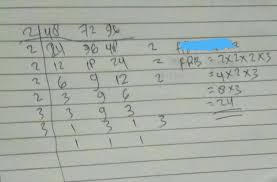 2 | 48 72 96
2 24 36 48 2
2 12 18 24 2 FPB = 2x2x2x3
2 6 9 12 2 = 4x2x3
2 3 9 6 = 8x3
3 3 9 3 = 24
3 1 3 1 3
1 1 1